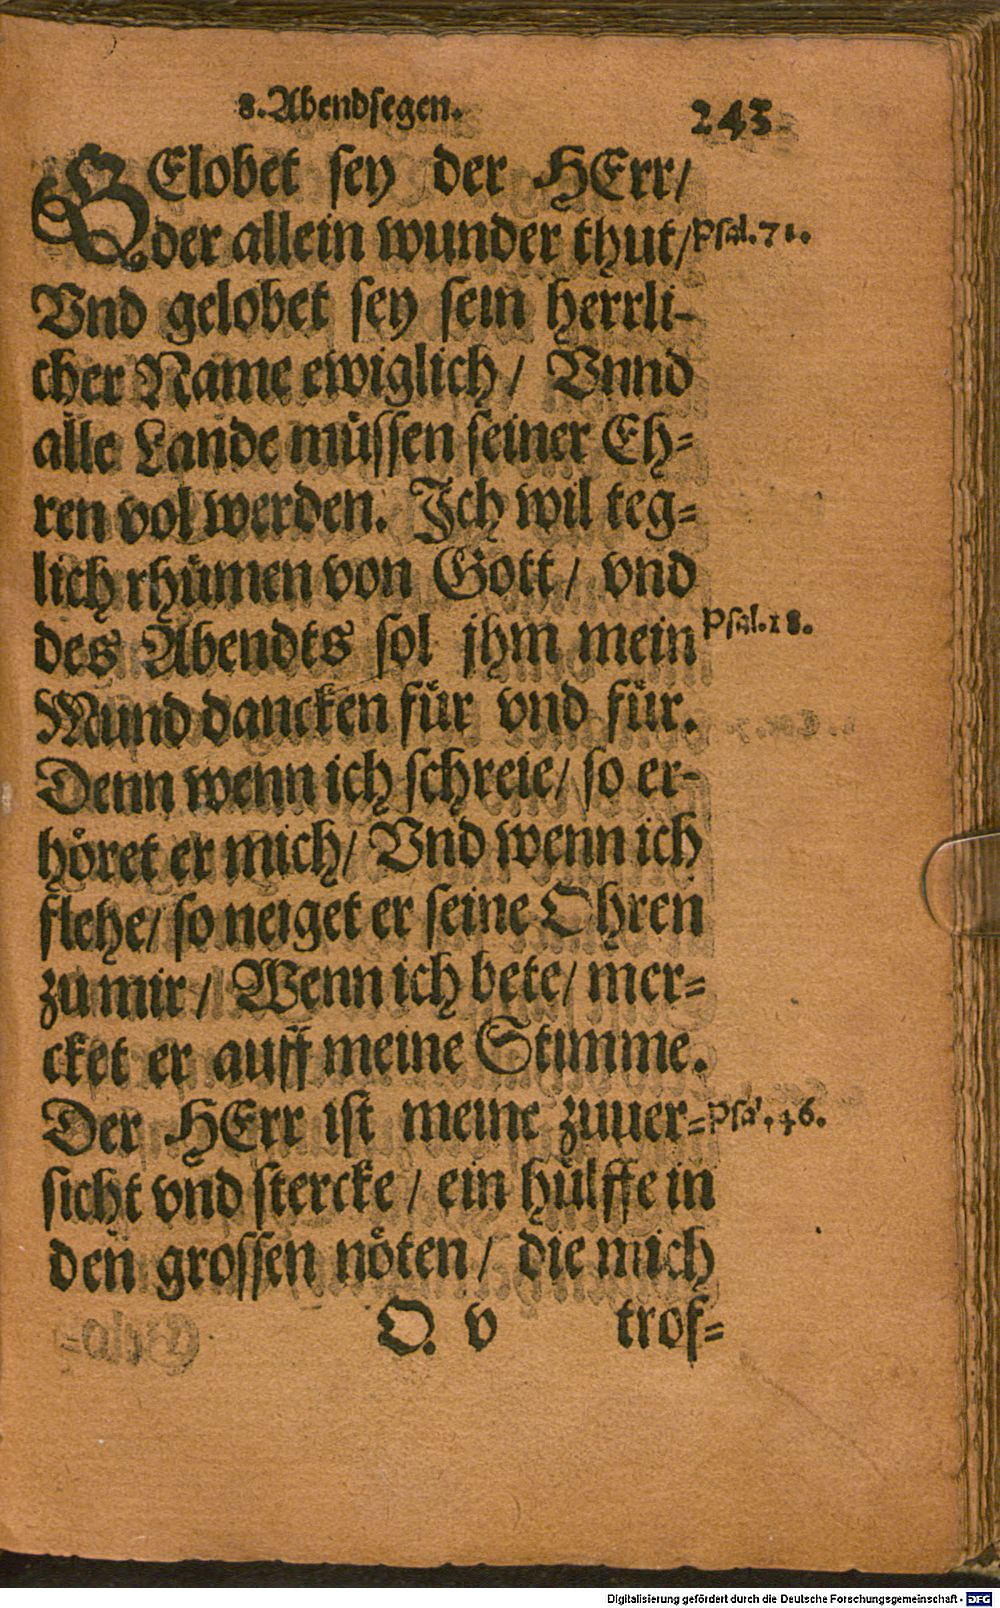 8. Abendsegen. 243
GElobet sey der HErr/
der allein wunder thut/ Psal. 71.
Vnd gelobet sey sein herrli-
cher Name ewiglich/ Vnnd
alle Lande müssen seiner Eh-
ren vol werden. Ich wil teg-
lich rhümen von Gott/ vnd
des Abendts sol jhm mein Psal. 18.
Mund dancken für vnd für.
Denn wenn ich schreie/ so er-
höret er mich/ Vnd wenn ich
flehe/ so neiget er seine Ohren
zu mir/ Wenn ich bete/ mer-
cket er auff meine Stimme.
Der HErr ist meine zuuer- Psal. 46.
sicht vnd stercke/ ein hülffe in
den grossen nöten/ die mich
O. v trof-
Digitalisierung gefördert durch die Deutsche Forschungsgemeinschaft - DFG